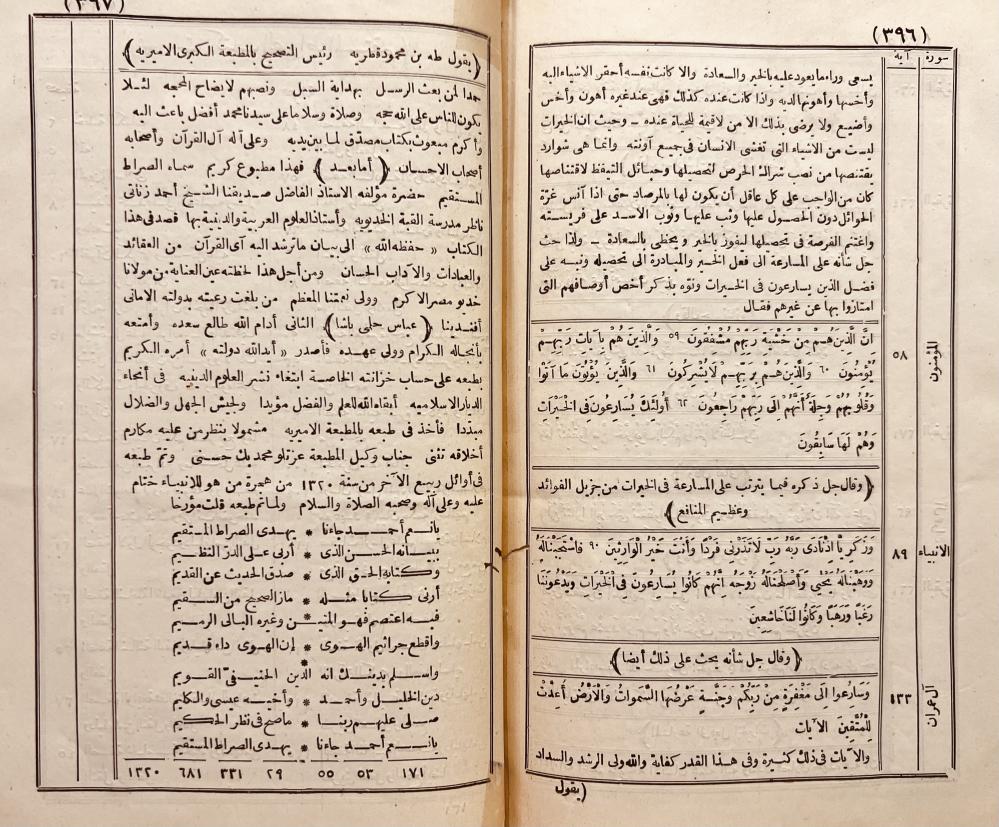 (٣٩٦)
سورة آية
يسعى وراء ما يعود عليه بالخير والسعادة والا كانت نفسه أحقر الاشياء اليه
وأخسها وأهونها لديه واذا كانت عنده كذلك فهى عند غيره أهون وأخس
وأضيع ولا يرضى بذلك الا من لا قيمة للحياة عنده ــ وحيث ان الخيرات
ليست من الاشياء التى تغشى الانسان فى جميع آونته وانما هى شوارد
يقتنصها من نصب شراك الحرص لتحصيلها وحبائل التيقظ لاقتناصها
كان من الواجب على كل عاقل أن يكون لها بالمرصاد حتى اذا آنس غرّة
الحوائل دون الحصول عليها وثب عليها وثوب الاسد على فريسته
واغتنم الفرصة فى تحصيلها ليفوز بالخير ويحظى بالسعادة ــ ولذا حث
جل شأنه على المسارعة الى فعل الخير والمبادرة الى تحصيله ونبه على
فضل الذين يسارعون فى الخيرات ونوّه بذكر أخص أوصافهم التى
امتازوا بها عن غيرهم فقال
المؤمنون ٥٨ انَّ الَّذِينَ هُمْ مِنْ خَشْيَةِ رَبِّهِمْ مُشْفِقُونَ ٥٩ وَالَّذِينَ هُمْ بِآيَاتِ رَبِّهِمْ
يُؤْمِنُونَ ٦٠ وَالَّذِينَ هُمْ بِرَبِّهِمْ لَا يُشْرِكُونَ ٦١ وَالَّذِينَ يُؤْتُونَ مَا آتَوْا
وَقُلُوبُهُمْ وَجِلَةٌ أَنَّهُمْ الَى رَبِّهِمْ رَاجِعُونَ ٦٢ أُولَئِكَ يُسَارِعُونَ فِى الْخَيْرَاتِ
وَهُمْ لَهَا سَابِقُونَ
(وقال جل ذكره فيما يترتب على المسارعة فى الخيرات من جزيل الفوائد
وعظيم المنافع)
الانبياء ٨٩ وَزَكَرِيَّا اذْ نَادَى رَبَّهُ رَبِّ لَا تَذَرْنِى فَرْدًا وَأَنْتَ خَيْرُ الْوَارِثِينَ ٩٠ فَاسْتَجَبْنَا لَهُ
وَوَهَبْنَا لَهُ يَحْيَى وَأَصْلَحْنَا لَهُ زَوْجَهُ انَّهُمْ كَانُوا يُسَارِعُونَ فِى الْخَيْرَاتِ وَيَدْعُونَنَا
رَغَبًا وَرَهَبًا وَكَانُوا لَنَا خَاشِعِينَ
(وقال جل شأنه يحث على ذلك أيضا)
آل عمران ١٣٣ وَسَارِعُوا الَى مَغْفِرَةٍ مِنْ رَبِّكُمْ وَجَنَّةٍ عَرْضُهَا السَّمَوَاتُ وَالْأَرْضُ أُعِدَّتْ
لِلْمُتَّقِينَ الآيات
والآيات فى ذلك كثيرة وفى هذا القدر كفاية والله ولى الرشد والسداد
(يقول
(٣٩٧)
(يقول طه بن محمود قطريه رئيس التصحيح بالمطبعة الكبرى الاميريه)
حمدا لمن بعث الرسل بهداية السبل ونصبهم لايضاح المحجه لئلا
يكون للناس على الله حجه وصلاة وسلاما على سيدنا محمد أفضل باعث اليه
وأكرم مبعوث بكتاب مصدّق لما بين يديه وعلى آله آل القرآن وأصحابه
أصحاب الاحسان (أما بعد) فهذا مطبوع كريم سماه الصراط
المستقيم حضرة مؤلفه الاستاذ الفاضل صديقنا الشيخ أحمد زناتى
ناظر مدرسة القبة الخديويه وأستاذ العلوم العربية والدينية بها قصد فى هذا
الكتاب «حفظه الله» الى بيان ما ترشد اليه آى القرآن من العقائد
والعبادات والآداب الحسان ومن أجل هذا لحظته عين العناية من مولانا
خديو مصر الاكرم وولى نعمتنا المعظم من بلغت رعيته بدولته الامانى
أفندينا (عباس حلمى باشا) الثانى أدام الله طالع سعده وأمتعه
بأنجاله الكرام وولى عهده فأصدر «أيد الله دولته» أمره الكريم
بطبعه على حساب خزانته الخاصة ابتغاء نشر العلوم الدينيه فى أنحاء
الديار الاسلاميه أبقاه الله للعلم والفضل مؤيدا ولجيش الجهل والضلال
مبدّدا فأخذ فى طبعه بالمطبعة الاميريه مشمولا بنظر من عليه مكارم
أخلاقه تثنى جناب وكيل المطبعة عزتلو محمد بك حسنى وتم طبعه
فى أوائل ربيع الآخر من سنة ١٣٢٠ من هجرة من هو للانبياء ختام
عليه وعلى آله وصحبه الصلاة والسلام ولما تم طبعه قلت مؤرخا
يانع أحمد جاءنا * يهدى الصراط المستقيم
ببيانه الحسن الذى * أربى على الدرّ النظيم
وكتابه الحق الذى * صدق الحديث عن القديم
أرنى كتابا مثله * ماز الصحيح من السقيم
فبه اعتصم فهو المتين * وغيره البالى الرميم
واقطع جراثيم الهوى * إن الهوى داء قديم
واسلم بدينك انه * الدين الحنيفىّ القويم
دين الخليل وأحمد * وأخيه عيسى والكليم
صلى عليهم ربنا * ما صح فى نظر الحكيم
يانع أحمد جاءنا * يهدى الصراط المستقيم
١٧١ ٥٣ ٥٥ ٢٩ ٣٣١ ٦٨١ ١٣٢٠